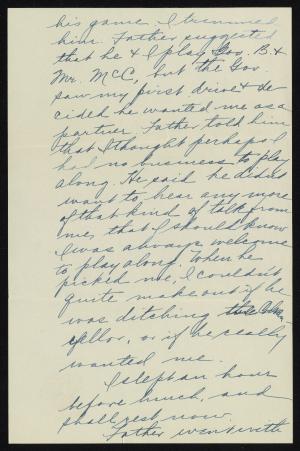 his game. I trimmed
him. Father suggested
that he & I play Gov. B. &
Mr. McC, but the Gov.
saw my first drive & de
cided he wanted me as a
partner. Father told him
that I thought perhaps I
had no business to play
along. He said he didn't
want to hear any more
of that kind of talk from
me, that I should know
I was always welcome
to play along. When he
picked me, I couldn't
quite make out if he
was ditching the
or if he really
wanted me.
I slept an hour
before lunch, and
shall rest now.
Father went with